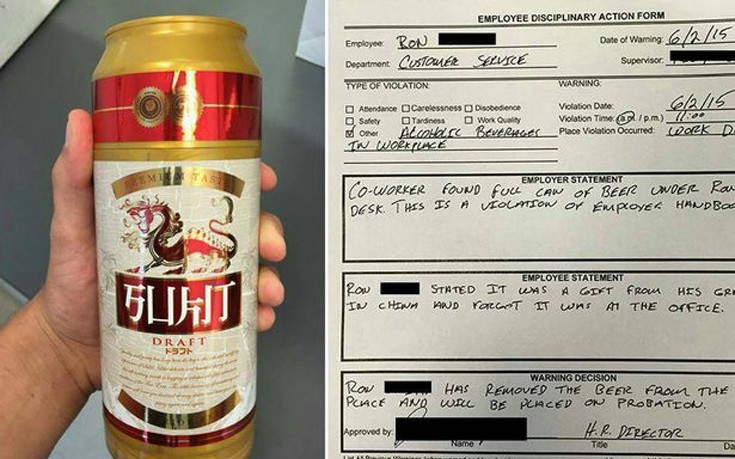 PREMIUM TASTE
SUKIT
DRAFT
ドラフト
EMPLOYEE DISCIPLINARY ACTION FORM
Employee: RON
Date of Warning: 6/2/15
Department: CUSTOMER SERVICE
Supervisor:
TYPE OF VIOLATION:
WARNING:
Attendance Carelessness Disobedience
Violation Date: 6/2/15
Safety Tardiness Work Quality
Violation Time: (a.m. / p.m.) 11:00
Other ALCOHOLIC BEVERAGES
Place Violation Occurred: WORK D
IN WORKPLACE
EMPLOYER STATEMENT
CO-WORKER FOUND FULL CAN OF BEER UNDER RON
DESK. THIS IS A VIOLATION OF EMPLOYEE HANDBOO
EMPLOYEE STATEMENT
RON STATED IT WAS A GIFT FROM HIS GR
IN CHINA AND FORGOT IT WAS AT THE OFFICE.
WARNING DECISION
RON HAS REMOVED THE BEER FROM THE
PLACE AND WILL BE PLACED ON PROBATION.
Approved by: H.R. DIRECTOR
Name Title Da